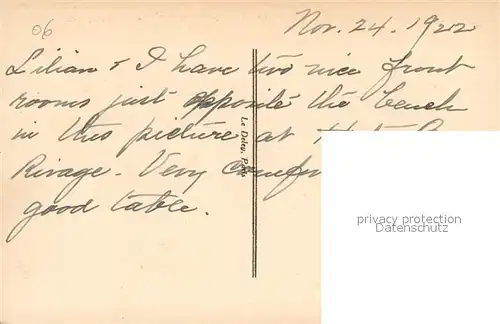 06
Nov. 24. 1922
Lilian & I have two nice front
rooms just opposite the bench
in this picture at
Rivage. Very
good table.
Le Deley, Paris
privacy protection
Datenschutz